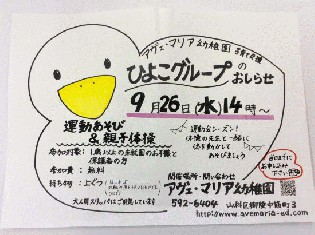 アヴェ・マリア幼稚園
ひよこグループの
おしらせ
9月26日(水)14時〜
運動あそび
&親子体操
運動会シーズン!
体操の先生と一緒に
体を動かして
あそびましょう
参加対象:1歳以上の未就園のお子様と
保護者の方
参加費:無料
持ち物:上ぐつ
大人用スリッパはご用意しています
開催場所・問い合わせ
アヴェ・マリア幼稚園
592-6404
http://www.avemaria-ed.com